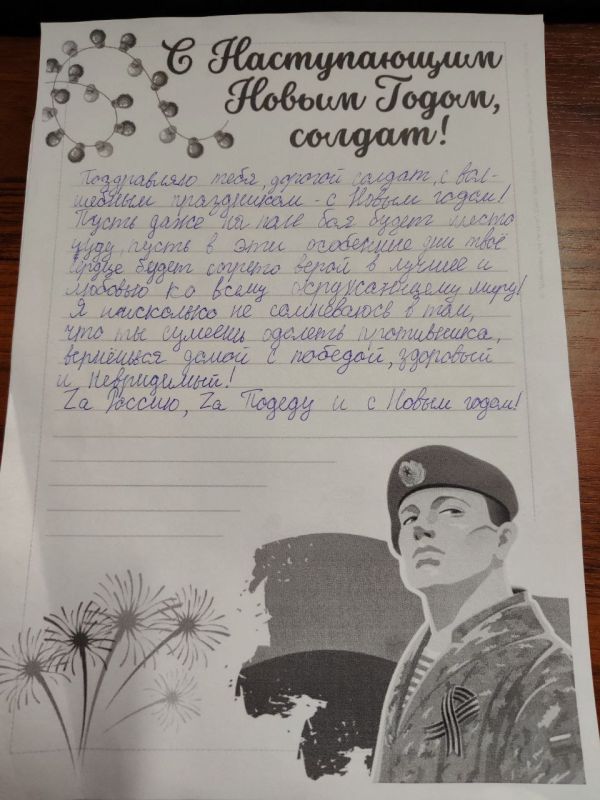 С Наступающим
Новым Годом,
солдат!
Поздравляю тебя, дорогой солдат, с вол-
шебным праздником - с Новым годом!
Пусть даже на поле боя будет место
чуду, пусть в эти особенные дни твоё
сердце будет согрето верой в лучшее и
любовью ко всему окружающему миру!
Я нисколько не сомневаюсь в том,
что ты сумеешь одолеть противника,
вернёшься домой с победой, здоровый
и невридимый!
Zа Россию, ZаПодеду и с Новым годом!